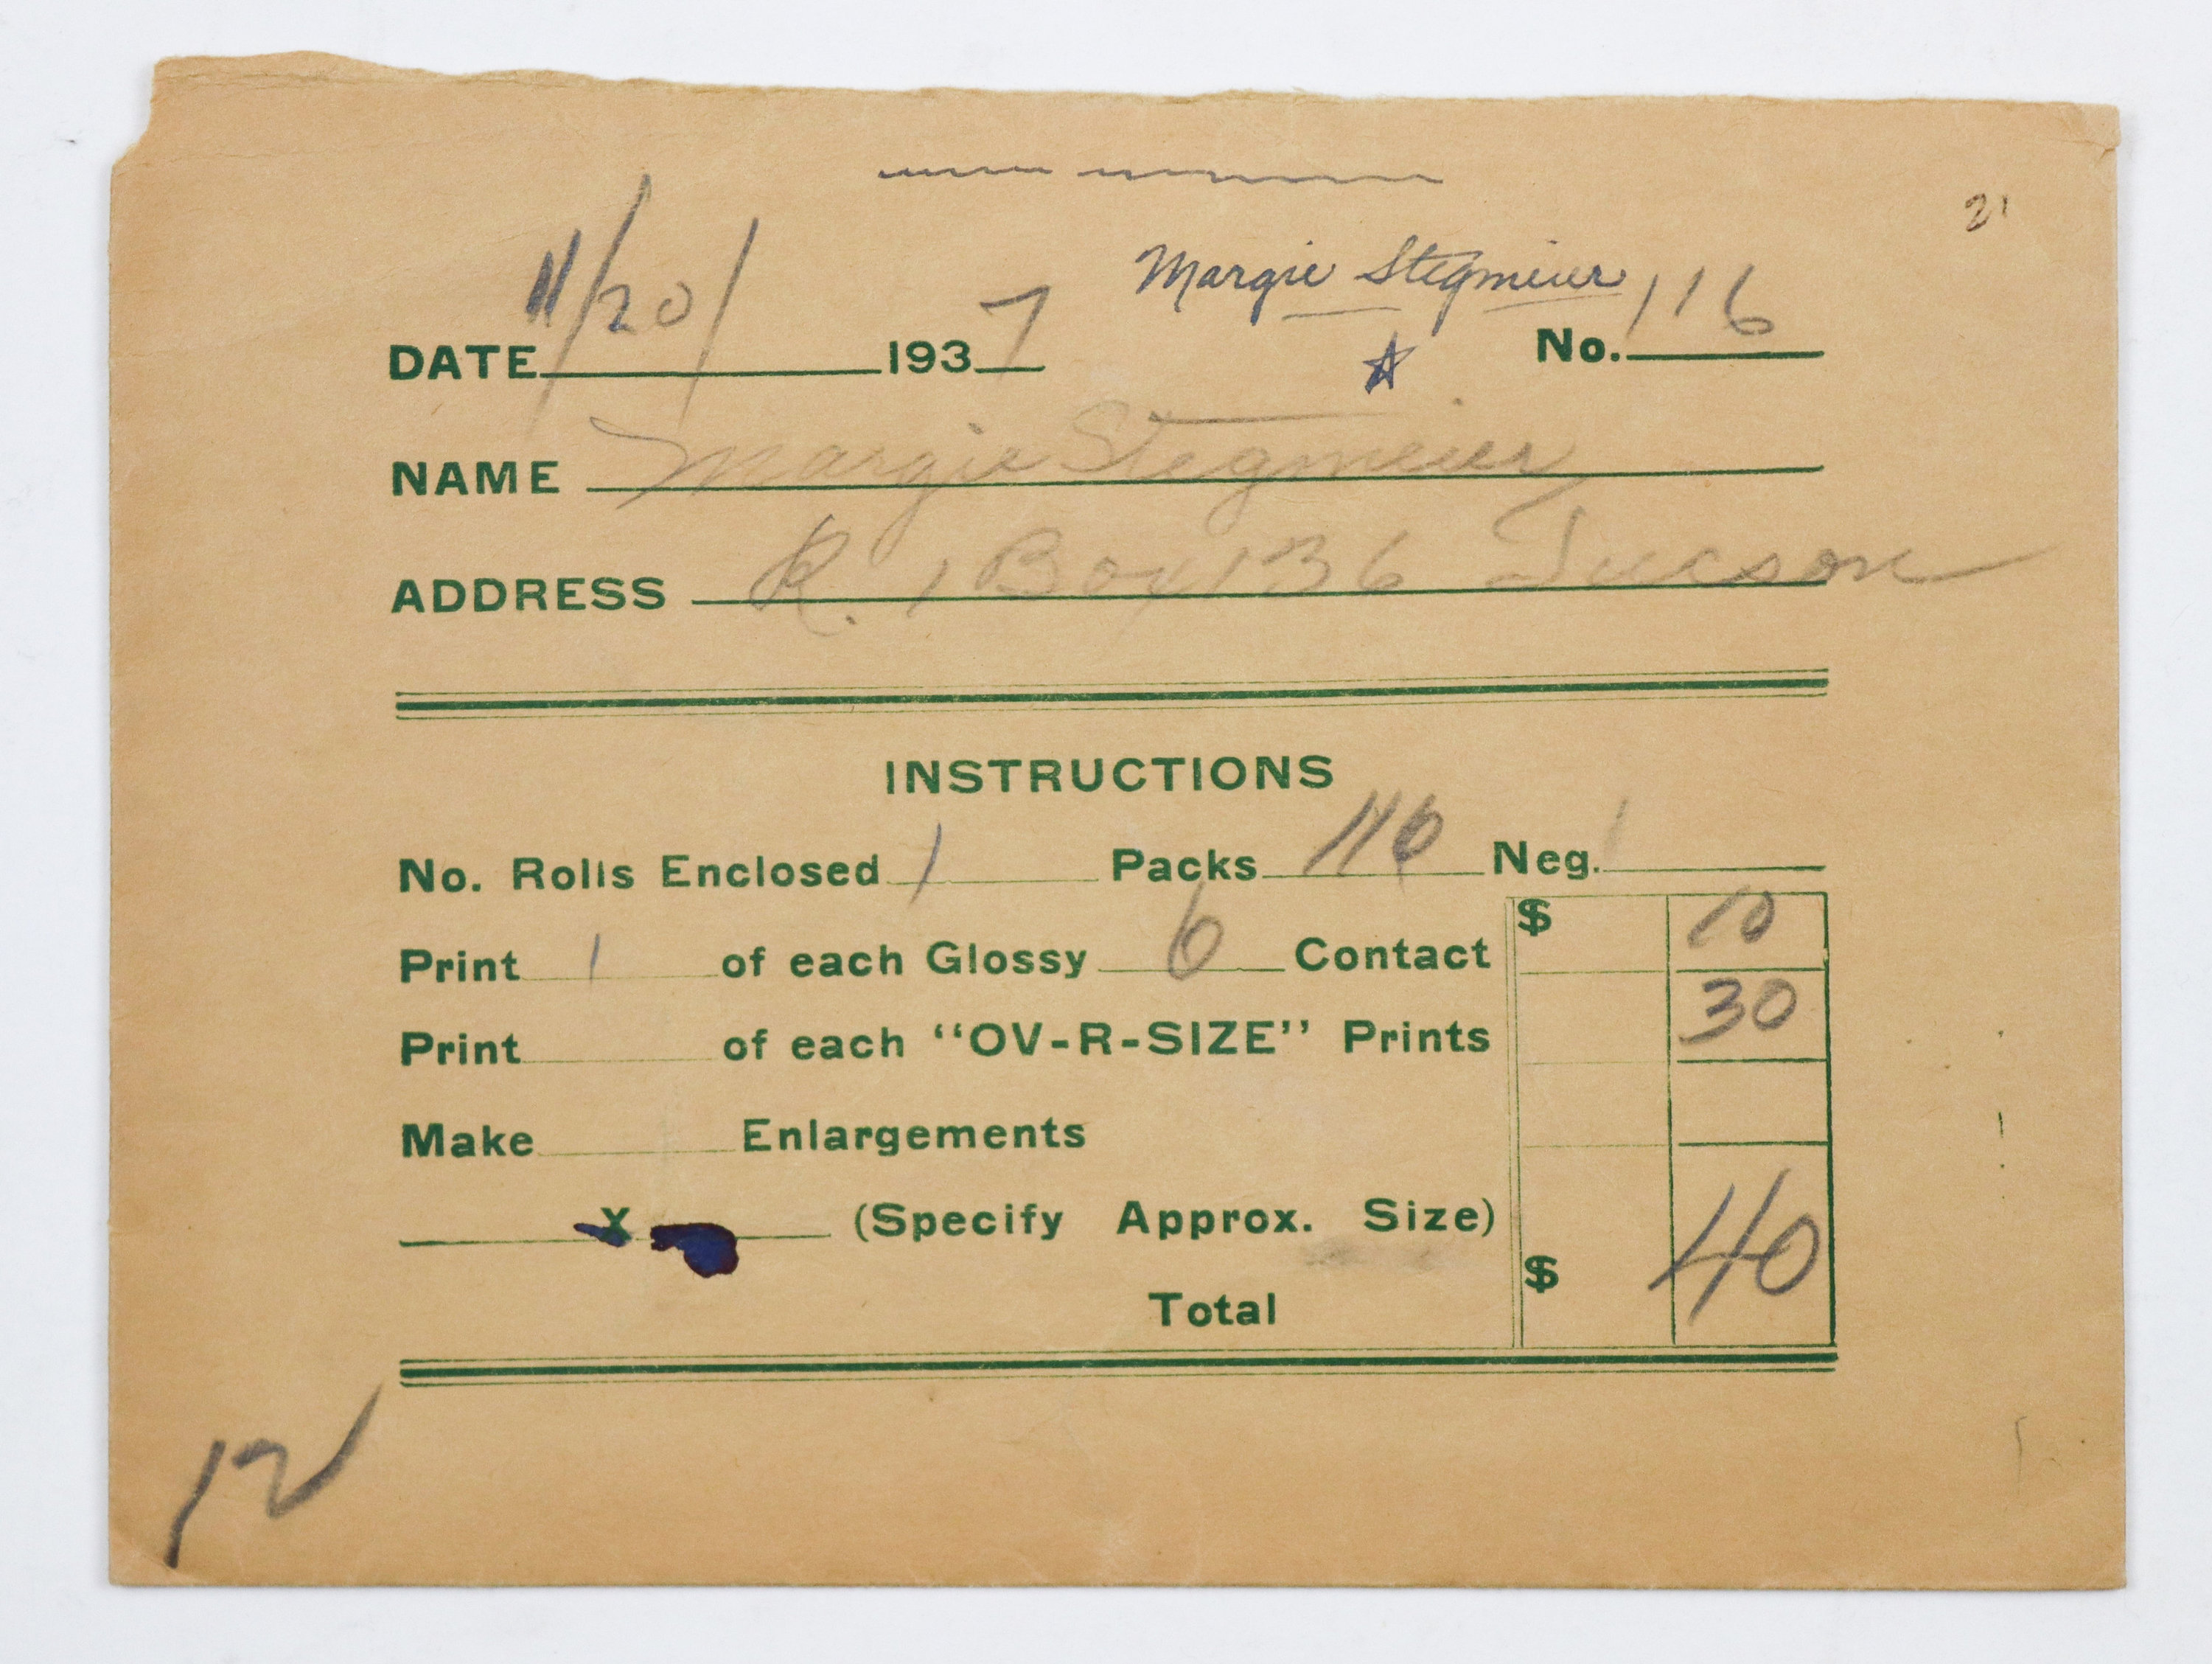 21
Margie Stegmeier
DATE 11/20/ 1937 No. 116
NAME Margie Stegmeier
ADDRESS R. 1 Box 136 Tucson
INSTRUCTIONS
No. Rolls Enclosed 1 Packs 116 Neg.
Print 1 of each Glossy 6 Contact $ 10
Print of each "OV-R-SIZE" Prints 30
Make Enlargements
X (Specify Approx. Size)
Total $ 40
12